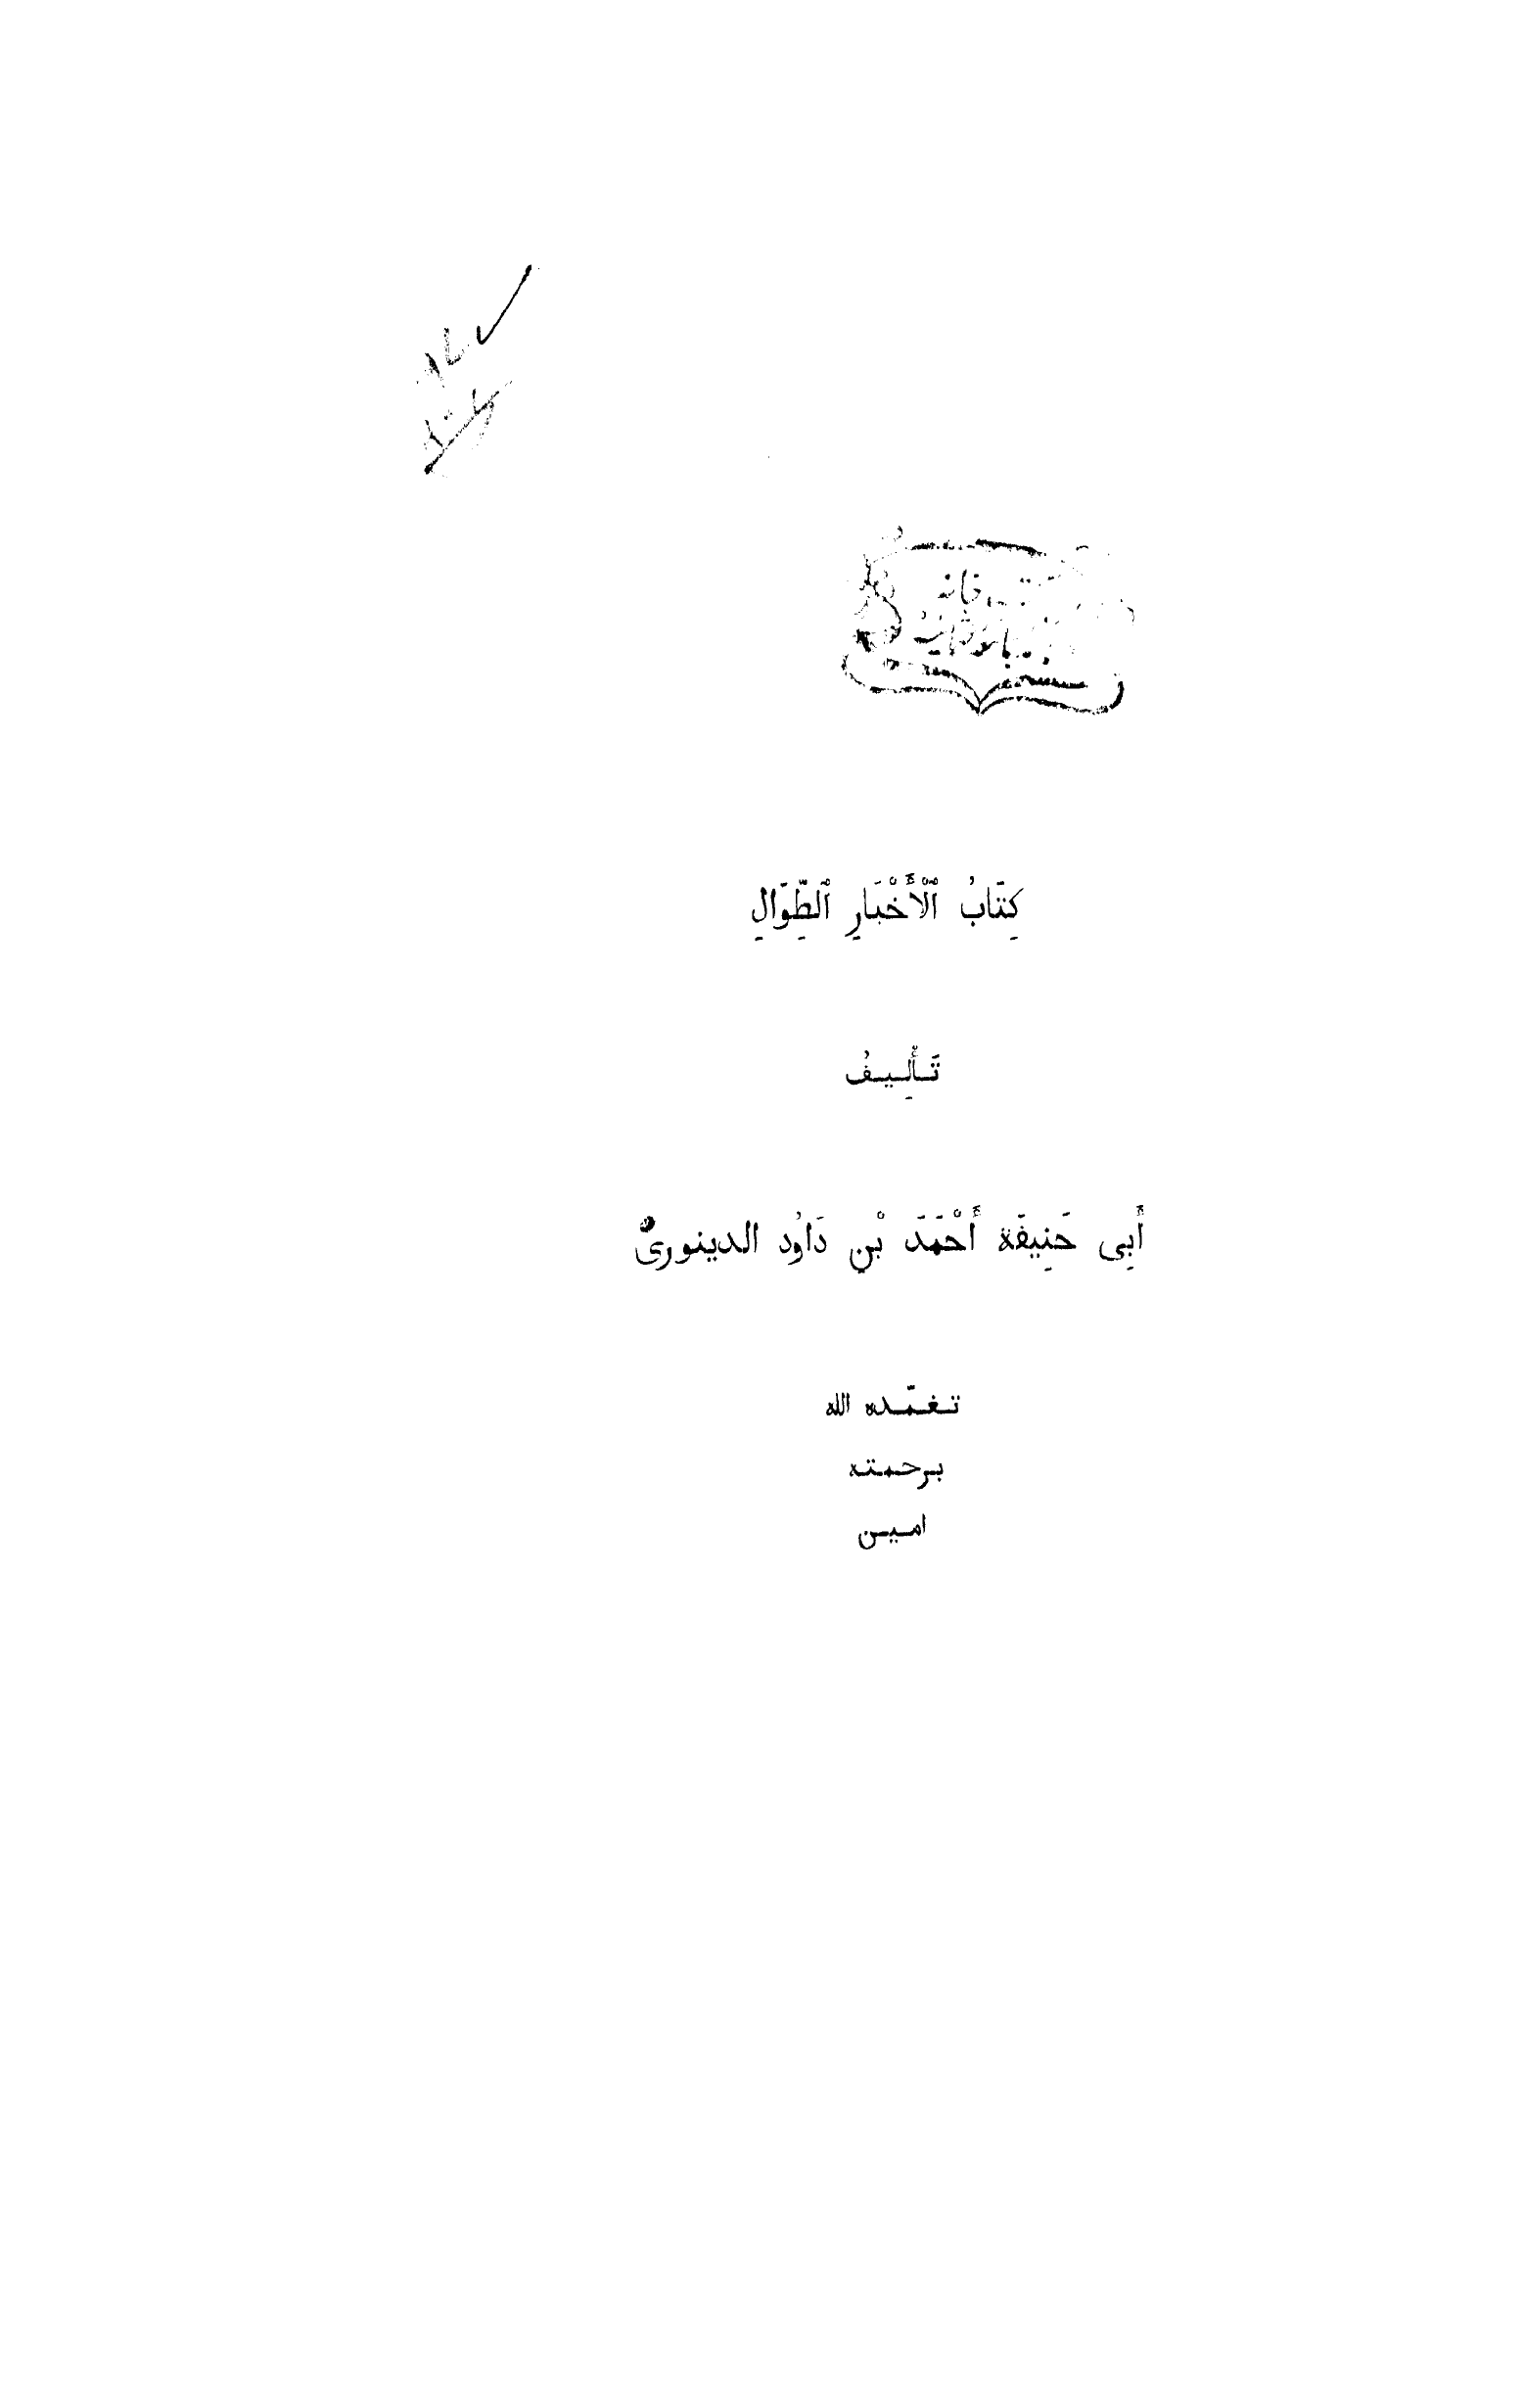 خانه
كِتَابُ ٱلْأَخْبَارِ ٱلطِّوَالِ
تَأْلِيفُ
أَبِى حَنِيفَة أَحْمَدَ بْنِ دَاوُد الدينورىّ
تغمّده الله
برحمته
امين